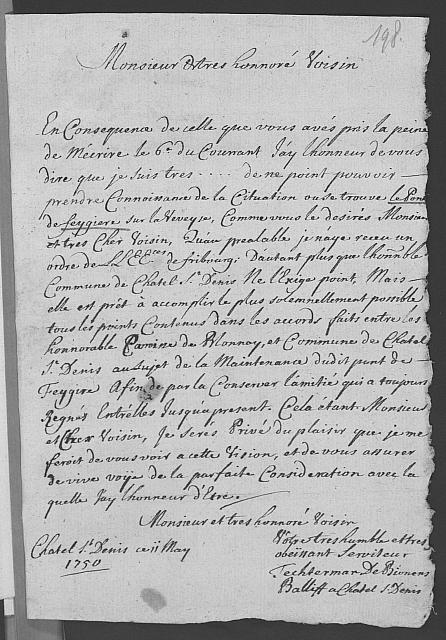 198.
Monsieur & tres honnoré Voisin
En Consequence de celle que vous avés pris la peine
de Mécrire le 6e. du Courrant J'ay lhonneur de vous
dire que je suis tres . . . . . de ne point pouvoir
prendre Connoissance de la Cituation ou se trouve le Pont
de feygiere sur la Veveyse, Comme vous le desirés Monsieur
et tres Cher Voisin, Quau prealable je n'aye receu un
ordre de LLEEces de fribourg. Dautant plus que lhonnble
Commune de Chatel St. Denis Ne l'Exige point, Mais
elle est prêt a accomplir le plus solemnellement possible
tous les points Contenus dans les accords faits entre les
honnorable Paroise de Blonnay, et Commune de Chatel
St. Denis au Sujet de la Maintenance dudit pont de
Feygire Afin de par la Conserver lamitié qui a toujours
Regnés Entr'elles Jusqu'a present. Cela étant Monsieur
et Cher Voisin, Je serés Privé du plaisir que je me
feroit de vous voir a cette Vision, et de vous assurer
de vive voije de la parfaite Consideration avec la
quelle J'ay lhonneur d'Etre.
Monsieur et tres honnoré Voisin
Votre tres humble et tres
Chatel St. Denis ce 11 May
obeissant Serviteur
1750
Techterman De Bionens
Balliff a Chatel St. Denis